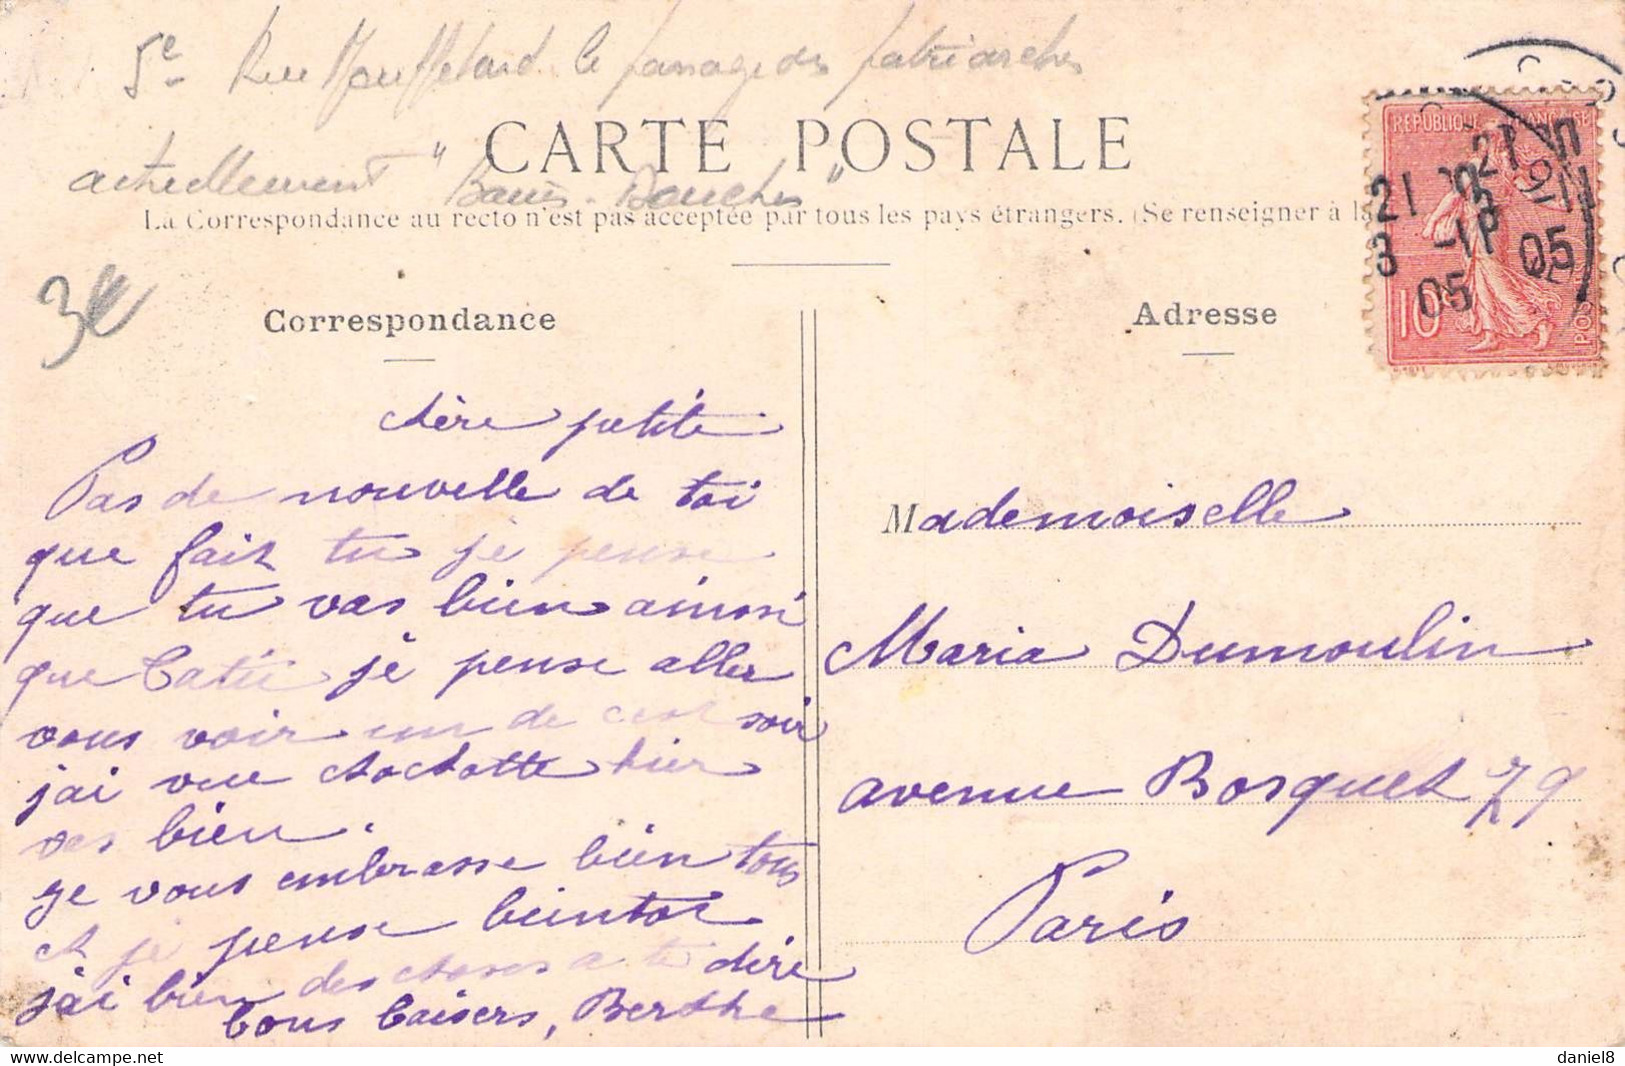 5e Rue Mouffetard le passage des patriarches
CARTE POSTALE
actuellement " Bains-Douches "
La Correspondance au recto n'est pas acceptée par tous les pays étrangers. (Se renseigner à la
RÉPUBLIQUE FRANÇAISE
10c
21
3 -1P
05
05
3€
Correspondance
Adresse
chère petite
Pas de nouvelle de toi
que fait tu je pense
que tu vas bien ainssi
que Catii je pense aller
vous voir un de ces soir
j'ai vue chochotte hier
ses bien.
je vous embrasse bien tous
et je pense bientot
j'ai bien des choses a te dire
bons baisers, Berthe
Mademoiselle
Maria Dumoulin
avenue Bosquet 79
Paris
daniel8